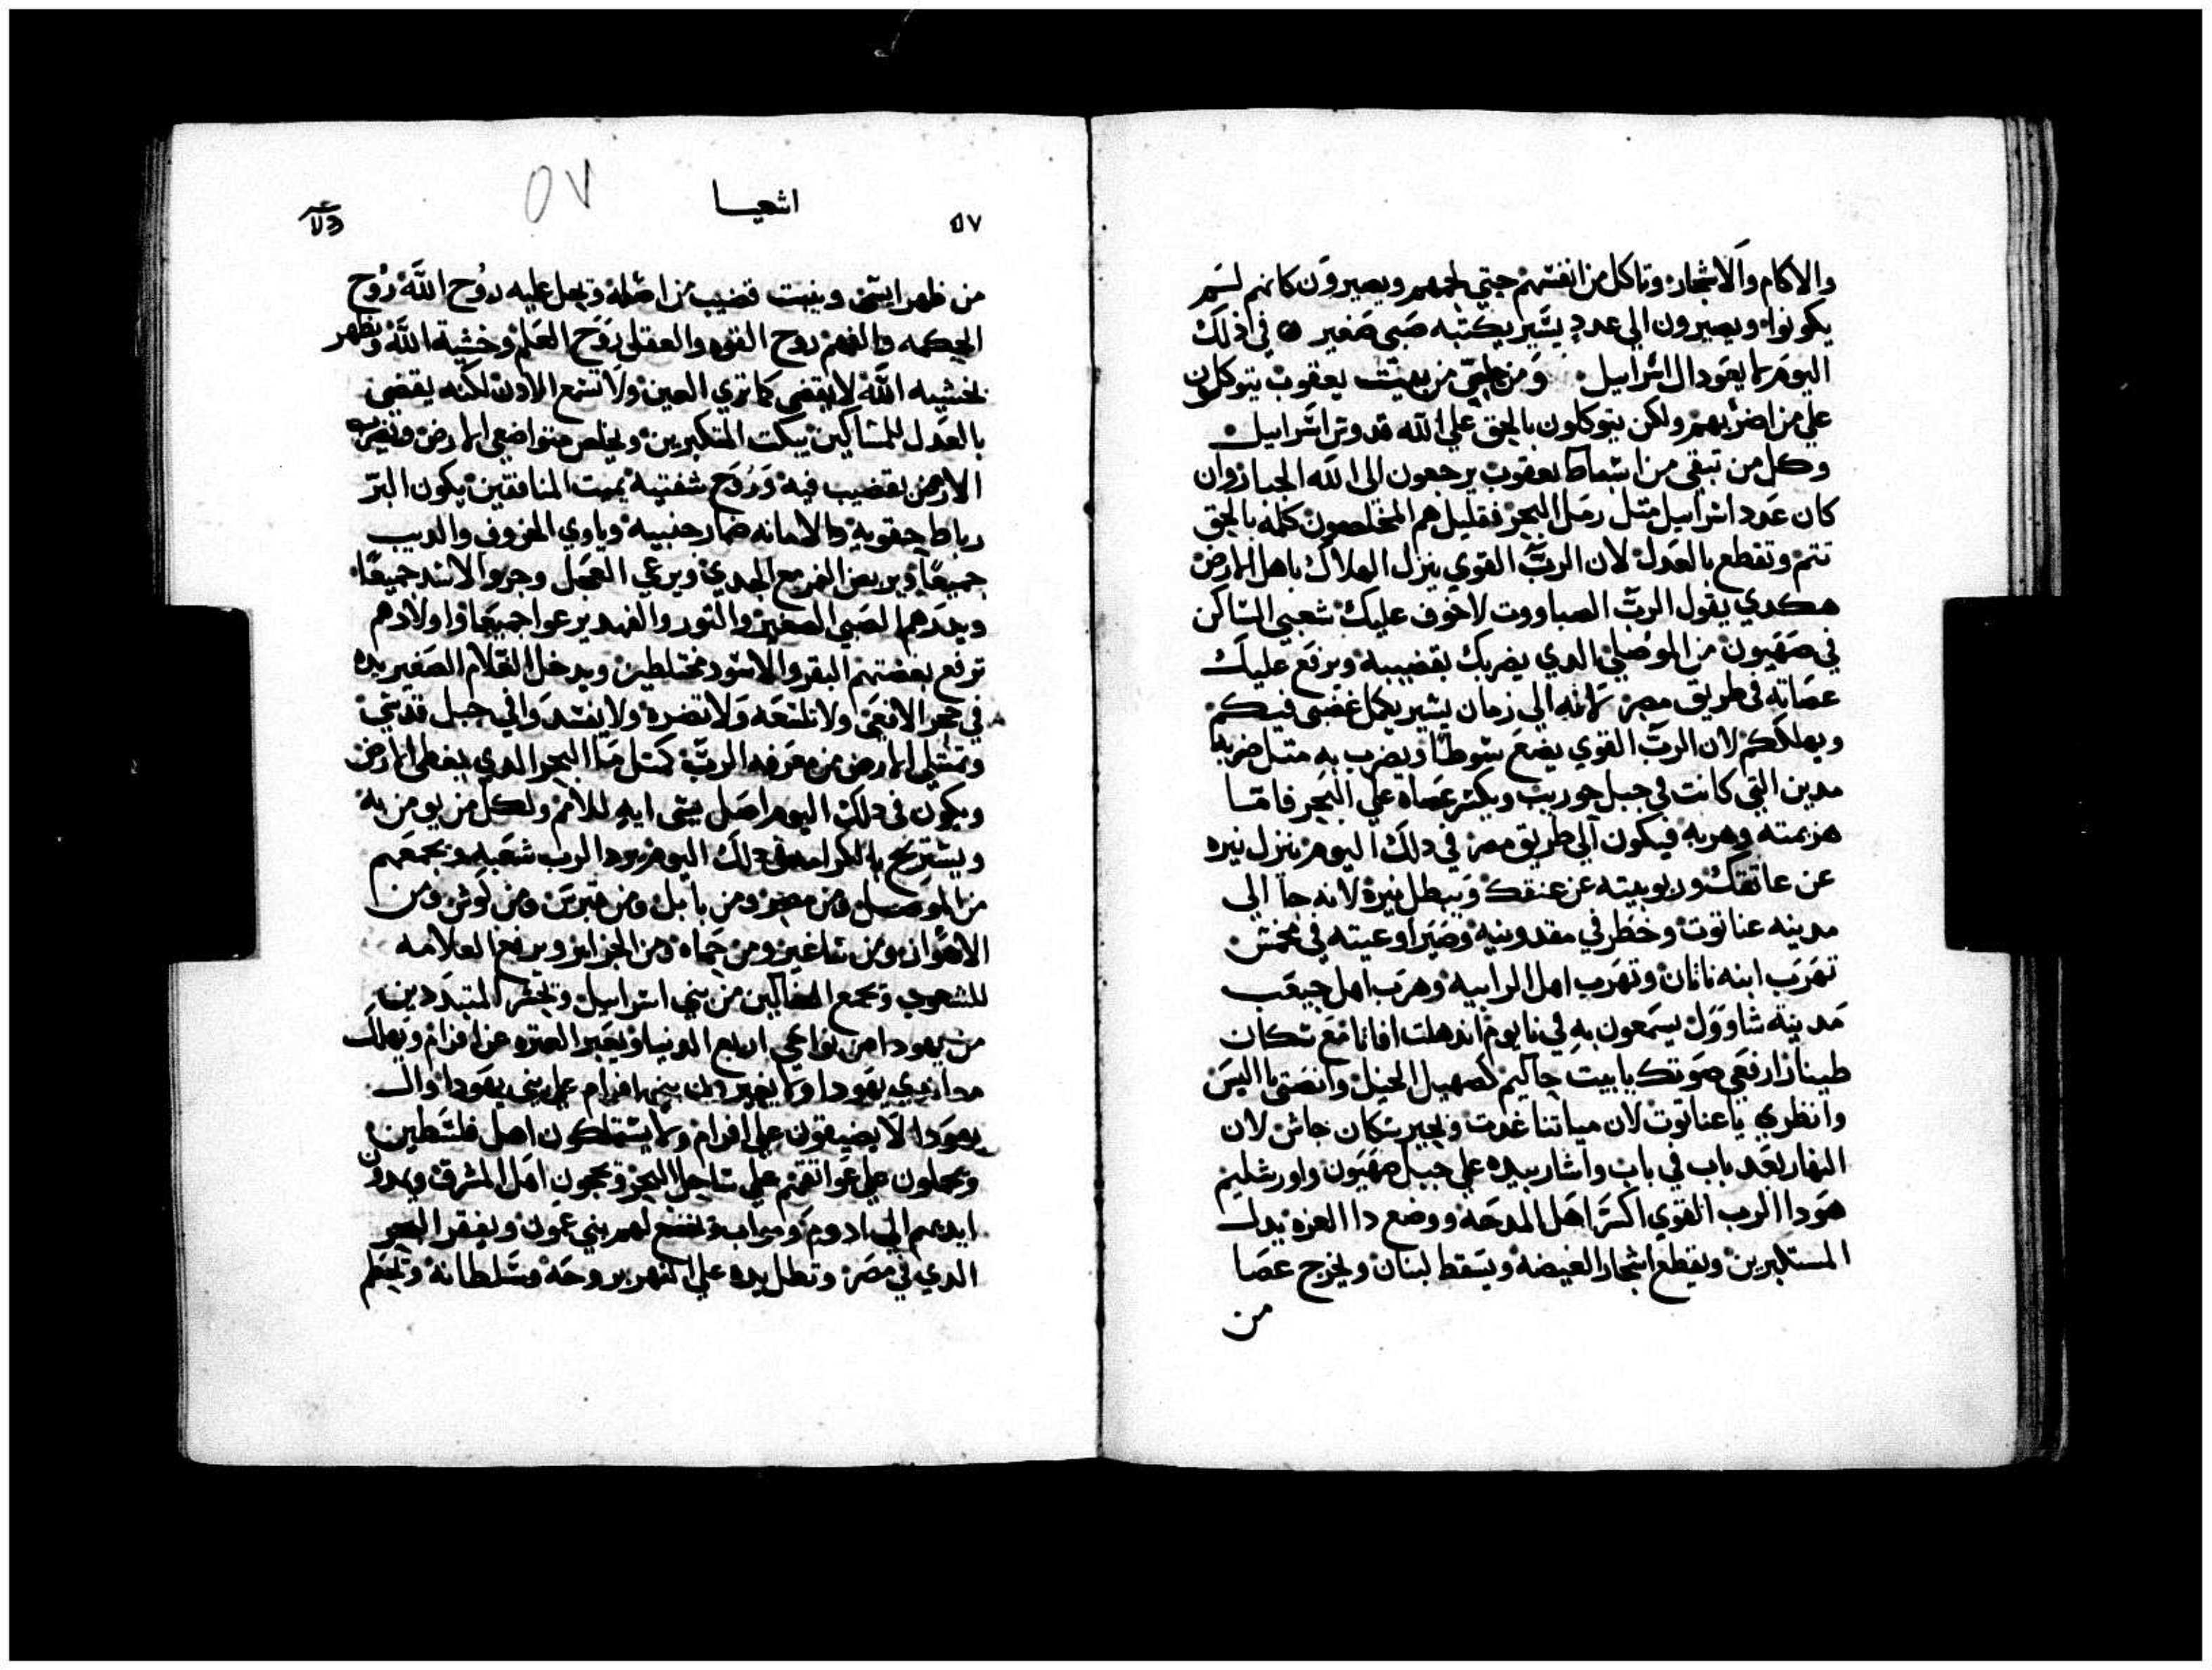 والاكام والاشجار وتاكل من انفسهم حتي لحمهم ويصيرون كانهم لسم
يكونوا ويصيرون الي عدد يسير يكتبه صبي صغير في ذلك
اليوم لا يعود ال اسراييل ومن خلص من بيت يعقوب يتوكلون
علي من اضر بهم ولكن يتوكلون بالحق علي الله قدوس اسراييل
وكل من تبقي من اسباط يعقوب يرجعون الي الله الجبار وان
كان عدد اسراييل متل رمل البحر فقليل هم المخلصون كله بالحق
تتم وتقطع بالعدل لان الرب القوي ينزل الهلاك باهل الارض
هكدي يقول الرب الصباووت لا خوف عليك شعبي الساكن
في صهيون من الموصلي الدي يضربك بقضيبه ويرفع عليك
عصاته في طريق مصر لانه الي زمان يسير يكمل غضبي فيكم
ويهلككم لان الرب القوي يضع سوطا ويضرب به متل ضربة
مدين التي كانت في جبل حوريب ويكتر عصاه علي البحر فاما
هزيمته وهربه فيكون الي طريق مصر في دلك اليوم ينزل نيره
عن عاتقك وربوبيته عن عنقك ويبطل نيره لانه جا الي
مدينه عناتوت وخطر في مقدونيه وصير اوعيته في مخمش
تهرب ابنه ناتان وتهرب اهل الرابيه وهرب اهل جبعب
مدينة شاوول يسمعون به في نابوم اندهلت افاتا مع سكان
طيناز ارفعي صوتك يا بيت جاليم كصهيل الخيل وانصتي يا اليس
وانظري يا عناتوت لان مياتنا غدت وبجير سكان حاش لان
النهار بعد باب في باب واشار بيده علي جبل صهيون واورشليم
هودا الرب القوي اكسر اهل المدحه ووضع دا العزه يدل
المستكبرين ويقطع اشجار الغيضه ويسقط لبنان ويخرج عصا
من
٥٧
اشعيا
٥٧
من ظهر ايسي وينبت قضيب من اصله ويحل عليه روح الله روح
الحكمه والفهم روح القوه والعقل روح العلم وخشية الله ويظهر
بخشيه الله لا يقضي كما تري العين ولا تسمع الادن لكنه يقضي
بالعدل للمساكين يبكت المتكبرين ويخلص متواضعي الارض ويضرب
الارض بقضيب فيه وروح شفتيه يميت المنافقين يكون البر
رباط حقويه والامانه ضمار جنبيه وياوي الخروف والديب
جميعا ويربض النمر مع الجدي ويرعي العجل وجرو الاسد جميعا
ويجدهم الصبي الصغير والتور والفهد يرعوا جميعا واولادهم
ترفع بعضهم البقر والاسود مختلطين ويدخل الغلام الصغير يده
في جحر الافعي ولا تلسعه ولا تضره ولا يفسد والي جبل قدسي
وتمتلي الارض من معرفه الرب كمتل ما البحر الدي يغطي الارض
ويكون في دلك اليوم اصل يسي ايه للامم ولكل من يومن به
ويستريح بالكرامه في دلك اليوم يرد الرب شعبه ويجمعهم
من الموصل ومن مصر ومن بابل ومن قبرس ومن كوش ومن
الاهواز ومن شاغير ومن حماه ومن الجزاير ويرفع العلامه
للشعوب ويجمع الضالين من بني اسراييل ويحشر المتبددين
من يهودا من نواحي اربع الدنيا ويعبر العتره عن افرام ويهلك
معاديي يهودا ولا يغيرون بني افرام علي بني يهودا وال
يهودا لا يضيقون علي افرام ولا يستملكون اهل فلسطين
ويحملون علي عواتقهم علي ساحل البحر ويجون اهل المشرق ويمدون
ايديهم الي ادوم وموابد يخضع لهم بني عمون ويفقر البحر
الدي في مصر وتطل يده علي النهر بروحه وسلطانه ويخيم